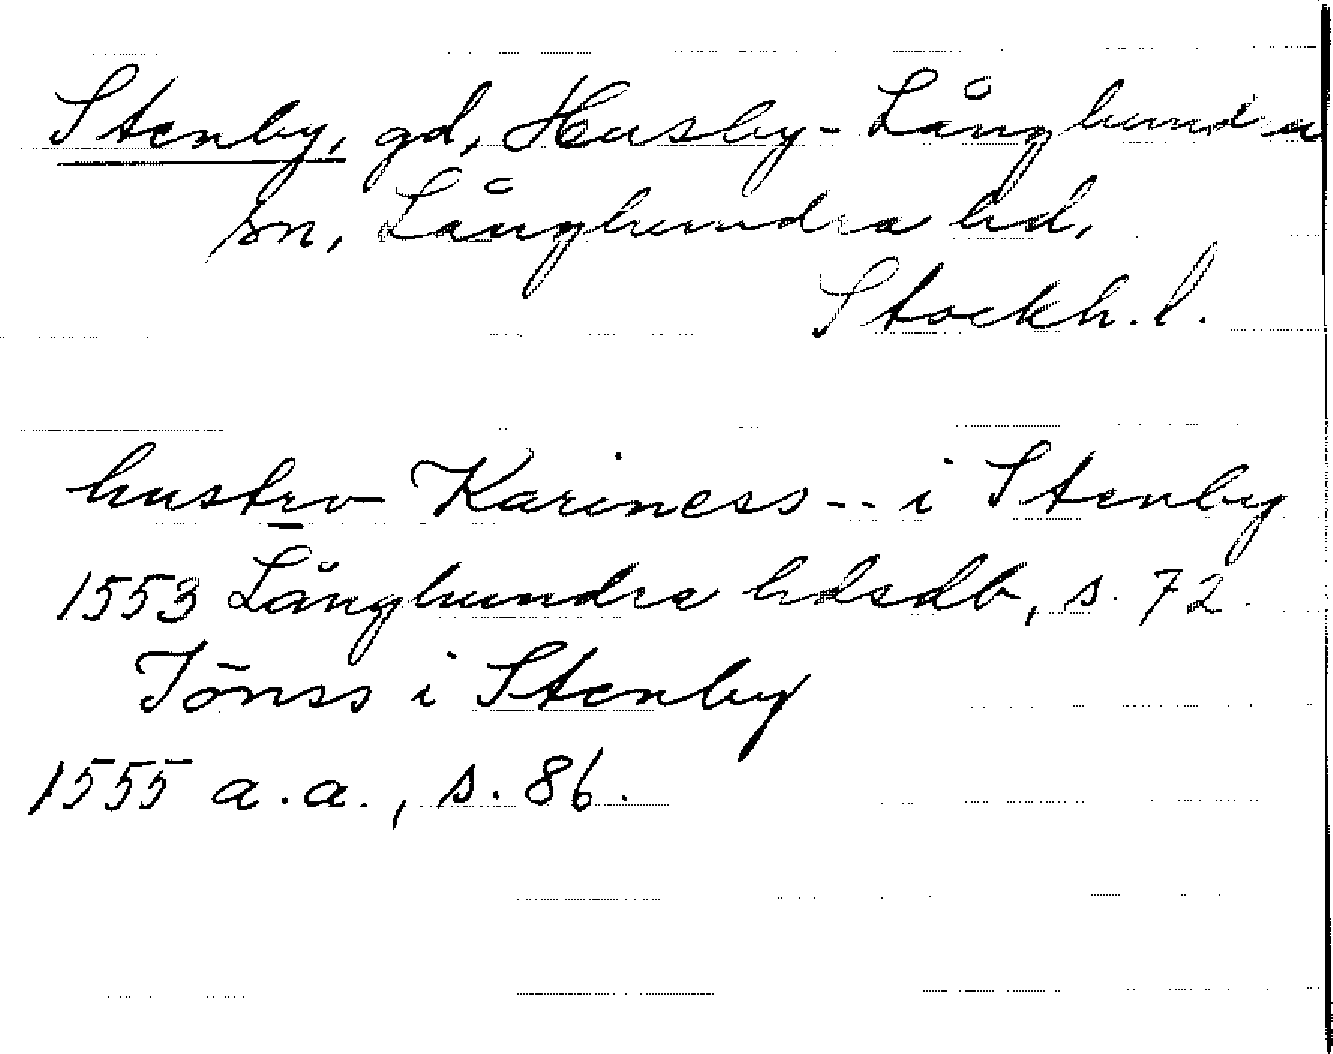 Stenby, gd, Husby-Långhundra
sn, Långhundra hd,
Stockh. l.
hustro Kariness -- i Stenby
1553 Långhundra hdsdb, s. 72
Jönss i Stenby
1555 a.a., s. 86.